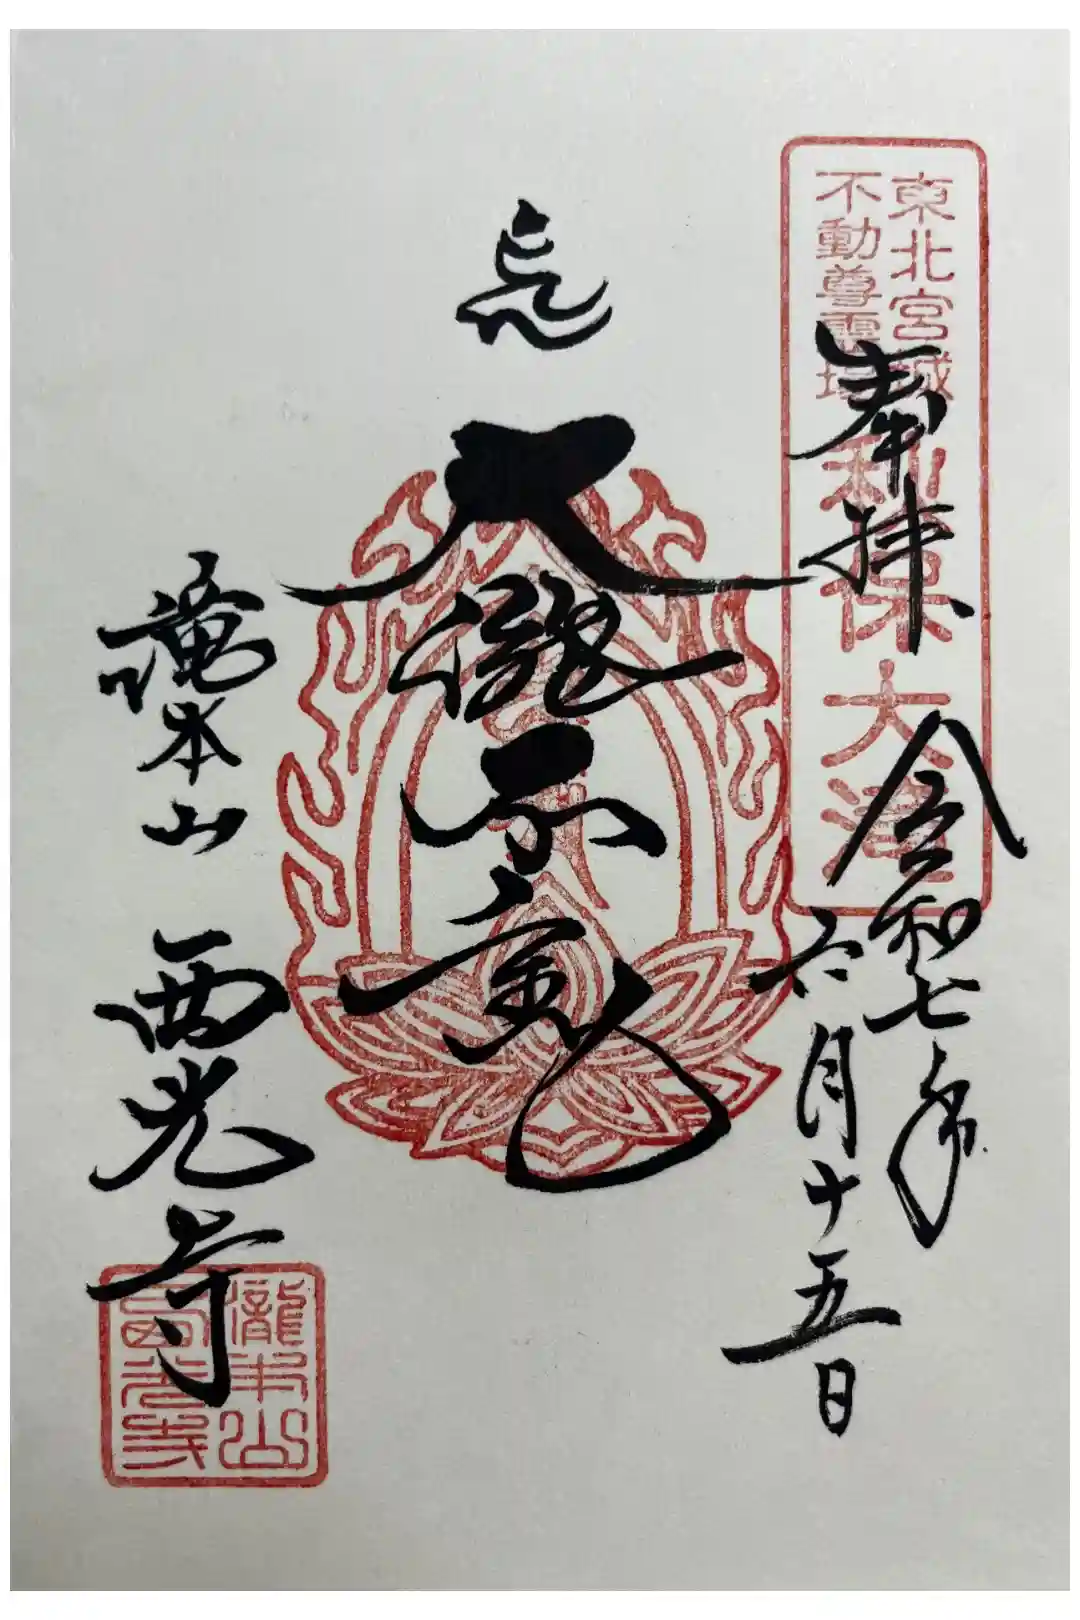 東北宮城
不動尊霊場
秋保大滝
奉拝
令和七年
六月十五日
大瀧不動
瀧本山
西光寺
瀧本山
西光寺